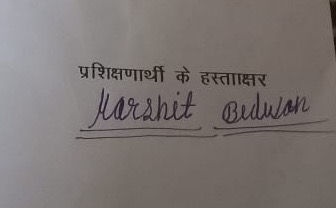 प्रशिक्षणार्थी के हस्तााक्षर
Harshit